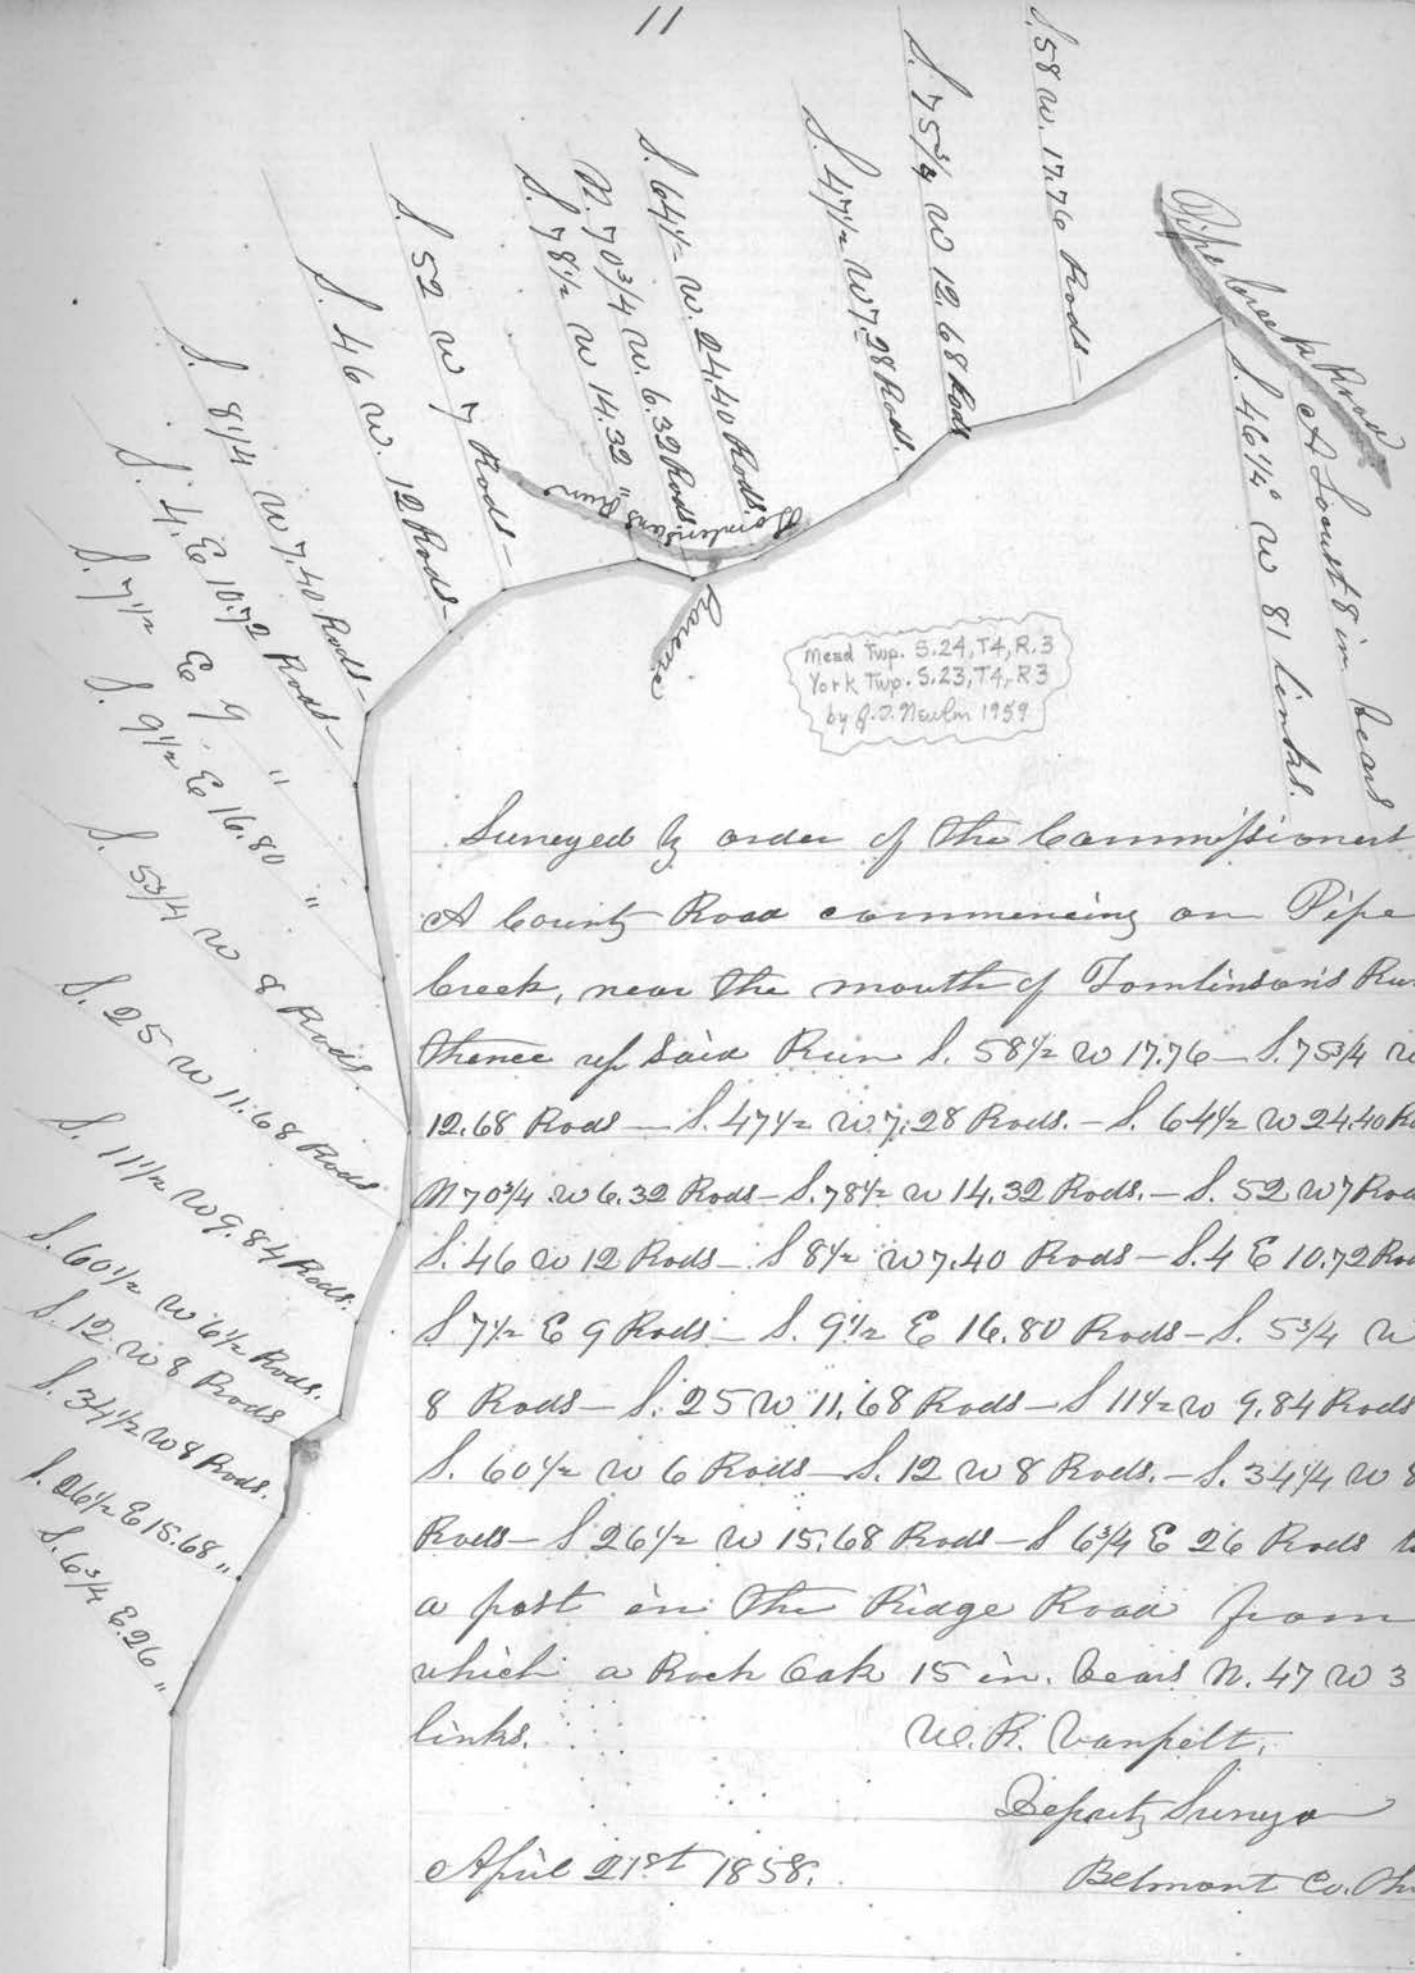 11
S. 58 W. 17.76 Rods -
S. 75 3/4 W 12.68 Rods
S. 47 1/2 W 7.28 Rods.
S. 64 1/2 W. 24.40 Rods.
N. 70 3/4 W. 6.32 Rods.
S. 78 1/2 W 14.32 "
S. 52 W 7 Rods -
S. 46 W. 12 Rods -
S. 8 1/4 W 7.40 Rods -
S. 4. E 10.72 Rods -
S. 7 1/2 E 9 "
S. 9 1/2 E 16.80 "
S. 5 3/4 W 8 Rods.
S. 25 W 11.68 Rods
S. 11 1/2 W 9.84 Rods.
S. 60 1/2 W 6 1/2 Rods.
S. 12 W 8 Rods
S. 34 1/2 W 8 Rods.
S. 26 1/2 E 15.68 "
S. 6 3/4 E. 26 "
Pipe Creek Road
A Locust 8 in. bears
S. 46 1/4° W 81 links.
Tomlinsons Run
Ravine
Mead Twp. S.24, T4, R.3
York Twp. S.23, T4, R3
by 1959
Surveyed by order of the Commissioners
A County Road commencing on Pipe
Creek, near the mouth of Tomlinson's Run
thence up said Run S. 58 1/2 W 17.76 - S. 75 3/4 W
12.68 Rods - S. 47 1/2 W 7.28 Rods. - S. 64 1/2 W 24.40 Ro
N 70 3/4 W 6.32 Rods - S. 78 1/2 W 14.32 Rods. - S. 52 W 7 Rod
S. 46 W 12 Rods - S 8 1/2 W 7.40 Rods - S. 4 E 10.72 Rod
S 7 1/2 E 9 Rods - S. 9 1/2 E 16.80 Rods - S. 5 3/4 W
8 Rods - S. 25 W 11.68 Rods - S 11 1/2 W 9.84 Rods
S. 60 1/2 W 6 Rods - S. 12 W 8 Rods. - S. 34 1/4 W 8
Rods - S 26 1/2 W 15.68 Rods - S 6 3/4 E 26 Rods to
a post in the Ridge Road from
which a Rock Oak 15 in. bears N. 47 W 3
links. W. R. Vanpelt,
Deputy Surveyo
April 21st 1858. Belmont Co. Ohi